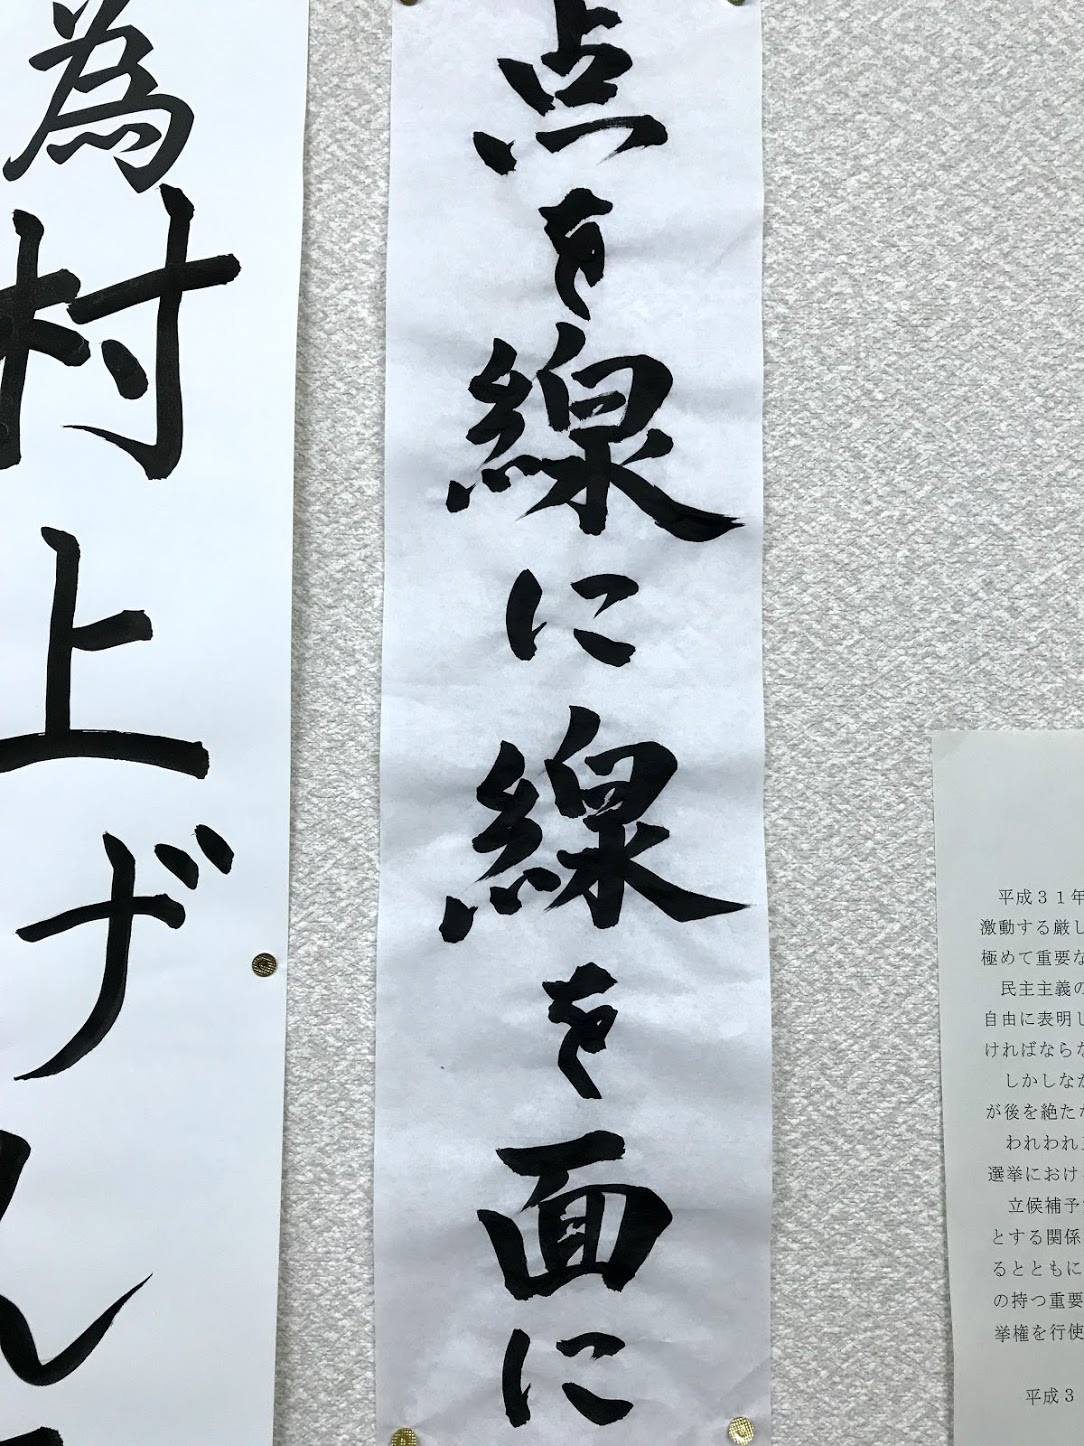 為
村上げん
点を線に線を面に
平成３１年
激動する厳し
極めて重要な
民主主義の
自由に表明し
ければならな
しかしなが
が後を絶たな
われわれ
選挙におけ
立候補予
とする関係
るとともに
の持つ重要
挙権を行使
平成３